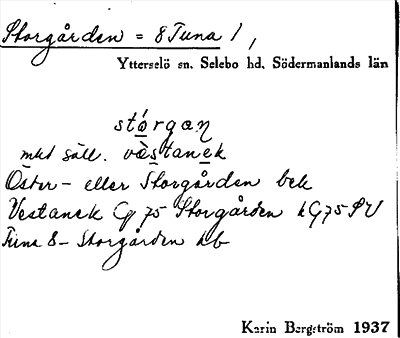 Storgården = 8 Tuna 1,
Ytterselö sn. Selebo hd. Södermanlands län
stórgan
mkt säll. vàstanek
Öster- eller Storgården bek
Vestanek Gg 75 Storgården hG 75 SU
Tuna 8 - Storgården hb
Karin Bergström 1937